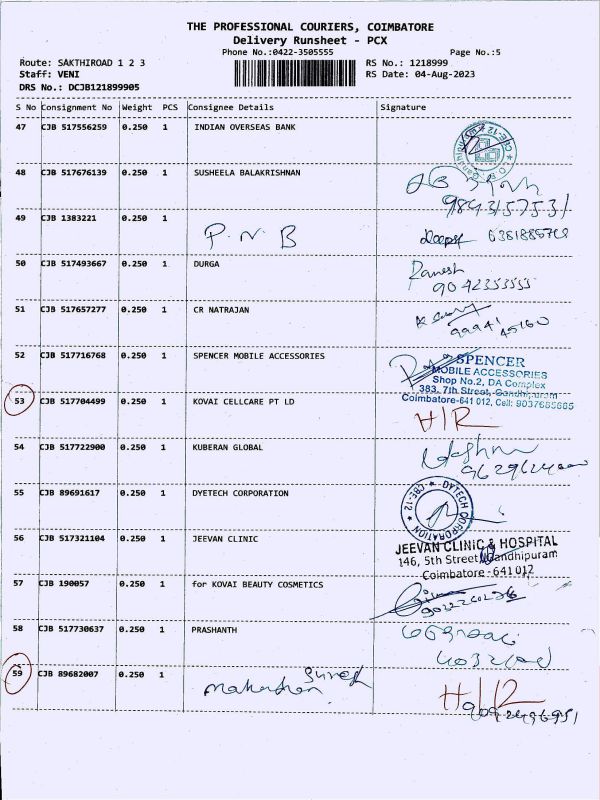 THE PROFESSIONAL COURIERS, COIMBATORE
Delivery Runsheet - PCX
Phone No.:0422-3505555 Page No.:5
Route: SAKTHIROAD 1 2 3 RS No.: 1218999
Staff: VENI RS Date: 04-Aug-2023
DRS No.: DCJB121899905
S No Consignment No Weight PCS Consignee Details Signature
47 CJB 517556259 0.250 1 INDIAN OVERSEAS BANK
CBE-12
48 CJB 517676139 0.250 1 SUSHEELA BALAKRISHNAN
9843157531
49 CJB 1383221 0.250 1 P.N.B
50 CJB 517493667 0.250 1 DURGA Ramesh
9042353555
51 CJB 517657277 0.250 1 CR NATRAJAN
99941 45160
52 CJB 517716768 0.250 1 SPENCER MOBILE ACCESSORIES SPENCER
MOBILE ACCESSORIES
Shop No.2, DA Complex
383, 7th Street, Gandhipuram
53 CJB 517704499 0.250 1 KOVAI CELLCARE PT LD Coimbatore-641 012, Cell: 9037685685
H/R
54 CJB 517722900 0.250 1 KUBERAN GLOBAL
55 CJB 89691617 0.250 1 DYETECH CORPORATION DYETECH CORPORATION
CBE-12
56 CJB 517321104 0.250 1 JEEVAN CLINIC JEEVAN CLINIC & HOSPITAL
146, 5th Street, Gandhipuram
Coimbatore - 641 012
57 CJB 190057 0.250 1 for KOVAI BEAUTY COSMETICS
58 CJB 517730637 0.250 1 PRASHANTH
59 CJB 89682007 0.250 1 H/R